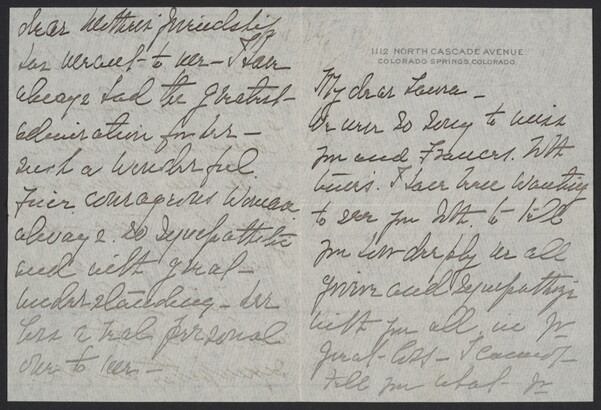 1112 NORTH CASCADE AVENUE
COLORADO SPRINGS, COLORADO.
My dear Laura –
We were so sorry to miss
you and Frances. Both
times. I have been wanting
to see you both. to tell
you how deeply we all
grieve and sympathize
with you all in yr
great loss – I cannot
tell you what – yr
dear Mother's friendship
has meant – to me – I have
always had the greatest –
admiration for her –
such a wonderful.
Fine courageous Woman.
always so sympathetic
and with great –
understanding – her
loss a real personal
one to me –